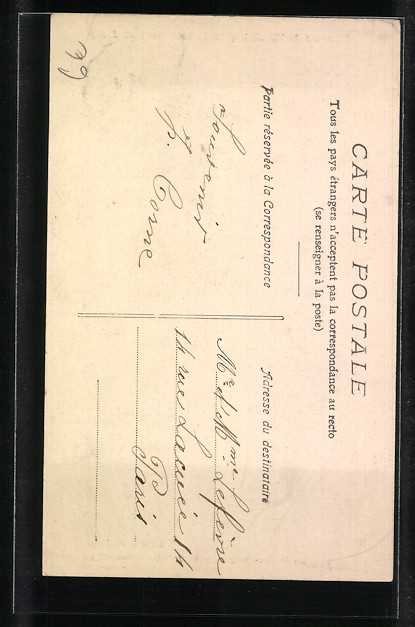 CARTE POSTALE
Tous les pays étrangers n'acceptent pas la correspondance au recto
(se renseigner à la poste)
Partie réservée à la Correspondance
Adresse du destinataire
Souvenir
P. Corne
Mr et Mme Lefèvre
14 rue Lacuée 14
Paris